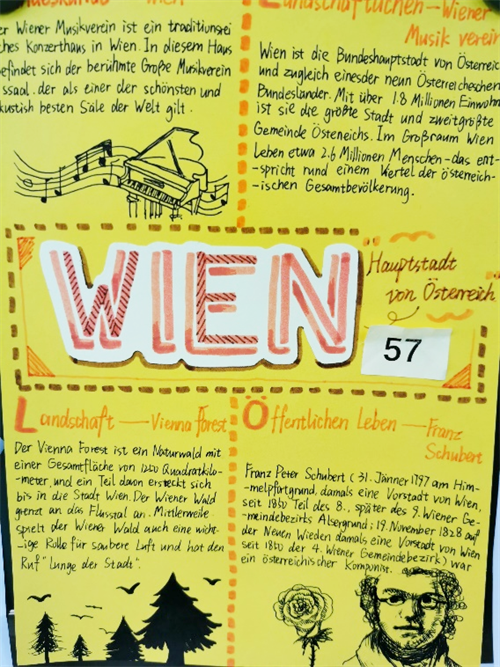 Wien
er Wiener Musikverein ist ein traditionsrei
ches Konzerthaus in Wien. In diesem Haus
efindet sich der berühmte Große Musikverein
ssaal. der als einer der schönsten und
kustish besten Säle der Welt gilt.
Landschaftlichen — Wiener
Musik verein
Wien ist die Bundeshauptstadt von Österreic
und zugleich einesder neun Österreicheschen
Bundesländer. Mit über 1.8 Millionen Einwohn
ist sie die größte Stadt und zweitgrößte
Gemeinde Östeneichs. Im Großraum Wien
Leben etwa 2.6 Millionen Menschen-das ent-
-spricht rund einem Vertel der österreich-
-ischen Gesamtbevölkerung.
WIEN
Hauptstadt
von Österreich
57
Landschaft — Vienna Forest
Der Vienna Forest ist ein Naturwald mit
einer Gesamtfläche von 1250 Quadratkilo-
-meter, und ein Teil davon ersteckt sich
bis in die Stadt Wien. Der Wiener Wald
grenzt an das Flusstal an. Mittlerweile
spielt der Wiener Wald auch eine wicht-
-ige Rolle für saubere Luft und hat den
Ruf "Lunge der Stadt".
Öffentlichen Leben — Franz
Schubert
Franz Peter Schubert ( 31. Jänner 1797 am Him-
-melpfortgrund, damals eine Vorstadt von Wien,
seit 1850 Teil des 8., später des 9. Wiener Ge-
-meindebezirks Alsergrund; 19. November 1828 auf
der Neuen Wieden damals eine Vorstadt von Wien
seit 1850 der 4. Wiener Gemeindebezirk) war
ein österreichischer Komponist.